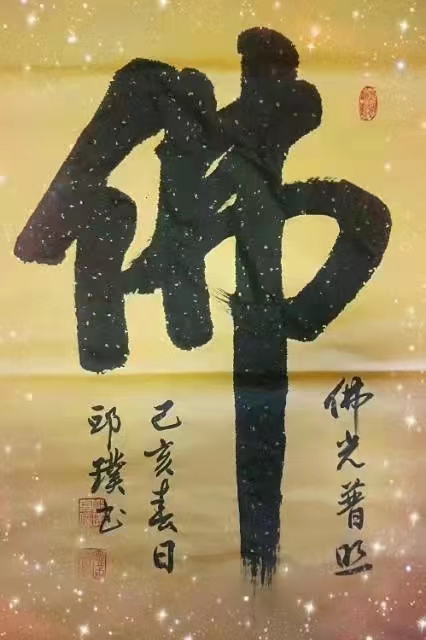 佛
佛光普照
己亥春日
邱璞书